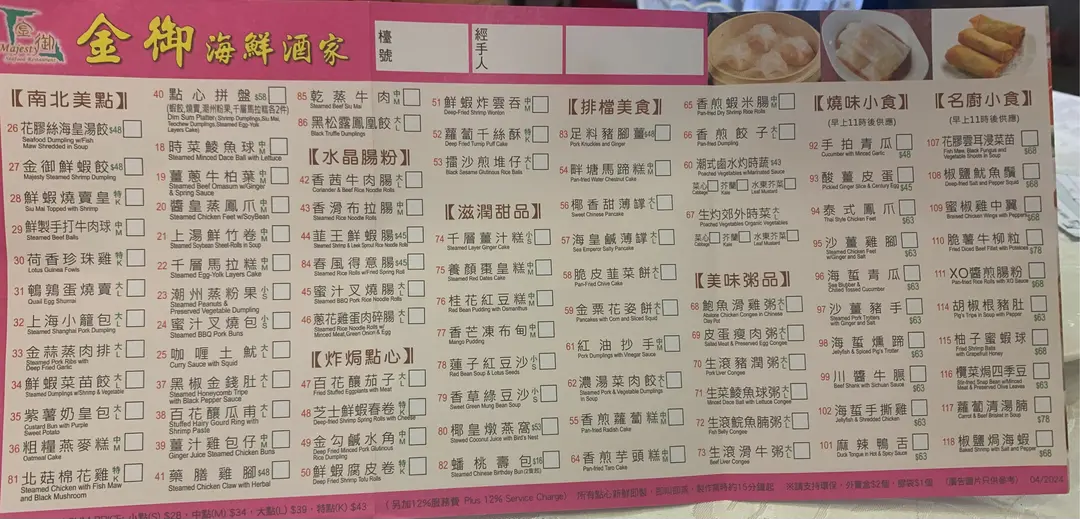 金御
Majesty
Seafood Restaurant
金御海鮮酒家
檯號
經手人
【南北美點】
26 花膠絲海皇湯餃 $48
Seafood Dumpling w/Fish
Maw Shredded in Soup
27 金御鮮蝦餃 $48
Majesty Steamed Shrimp Dumpling
28 鮮蝦燒賣皇 特K
Siu Mai Topped with Shrimp
29 鮮製手打牛肉球 中M
Steamed Beef Balls
30 荷香珍珠雞 特K
Lotus Guinea Fowls
31 鵪鶉蛋燒賣 大L
Quail Egg Shumai
32 上海小籠包 大L
Steamed Shanghai Pork Dumpling
33 金蒜蒸肉排 大L
Steamed Pork Ribs with
Deep Fried Garlic
34 鮮蝦菜苗餃 大L
Steamed Dumplings w/Shrimp & Vegetable
35 紫薯奶皇包 大L
Custard Bun with Purple
Sweet Potato
36 粗糧燕麥糕 中M
Oatmeal Cake
81 北菇棉花雞 特K
Steamed Chicken with Fish Maw
and Black Mushroom
40 點心拼盤 $58
(蝦餃,燒賣,潮州粉果,千層馬拉糕各2件)
Dim Sum Platter(Shrimp Dumplings,Siu Mai,
Teochew Dumplings,Steamed Egg-Yolk
Layers Cake)
18 時菜鯪魚球 中M
Steamed Minced Dace Ball with Lettuce
19 薑蔥牛柏葉 中M
Steamed Beef Omasum w/Ginger
& Spring Sauce
20 醬皇蒸鳳爪 中M
Steamed Chicken Feet w/SoyBean
21 上湯鮮竹卷 中M
Steamed Soybean Sheet-Rolls in Soup
22 千層馬拉糕 中M
Steamed Egg-Yolk Layers Cake
23 潮州蒸粉果 小S
Steamed Peanuts &
Preserved Vegetable Dumpling
24 蜜汁叉燒包 小S
Steamed BBQ Pork Buns
25 咖喱土魷 大L
Curry Sauce with Squid
37 黑椒金錢肚 大L
Steamed Honeycomb Tripe
with Black Pepper Sauce
38 百花釀瓜甫 大L
Stuffed Hairy Gourd Ring with
Shrimp Paste
39 薑汁雞包仔 中M
Ginger Juice Steamed Chicken Buns
41 藥膳雞腳 $48
Steamed Chicken Claw with Herbal
85 乾蒸牛肉 中M
Steamed Beef Siu Mai
86 黑松露鳳凰餃 大L
Black Truffle Dumplings
【水晶腸粉】
42 香茜牛肉腸 大L
Coriander & Beef Rice Noodle Rolls
43 香滑布拉腸 中M
Steamed Rice Noodle Rolls
44 韮王鮮蝦腸 $45
Steamed Shrimp & Leek Sprout Rice Noodle Rolls
84 春風得意腸 $45
Steamed Rice Noodle Rolls w/Fried Spring Roll
45 蜜汁叉燒腸 大L
Steamed BBQ Pork Rice Noodle Rolls
46 蔥花雞蛋肉碎腸 大L
Steamed Rice Noodle Rolls w/
Minced Meat,Green Onion & Egg
【炸焗點心】
47 百花釀茄子 大L
Fried Stuffed Eggplants with Meat
48 芝士鮮蝦春卷 特K
Deep-fried Shrimp Spring Rolls with Cheese
49 金勾鹹水角 中M
Deep Fried Minced Pork Glutinous
Rice Dumpling
50 鮮蝦腐皮卷 特K
Deep Fried Shrimp Tofu Rolls
51 鮮蝦炸雲吞 中M
Deep-Fried Shrimp Wonton
52 蘿蔔千絲酥 特K
Deep Fried Turnip Puff Cake
53 擂沙煎堆仔 大L
Black Sesame Glutinous Rice Balls
【滋潤甜品】
74 千層薑汁糕 小S
Steamed Layer Ginger Cake
75 養顏棗皇糕 中M
Steamed Red Dates Cake
76 桂花紅豆糕 中M
Red Bean Pudding with Osmanthus
77 香芒凍布甸 中M
Mango Pudding
78 蓮子紅豆沙 小S
Red Bean Soup & Lotus Seeds
79 香草綠豆沙 小S
Sweet Green Mung Bean Soup
80 椰皇燉燕窩 $53
Stewed Coconut Juice with Bird's Nest
82 蟠桃壽包 $16
Steamed Chinese Birthday Bun
【排檔美食】
83 足料豬腳薑 $48
Pork Knuckles and Ginger
54 畔塘馬蹄糕 中M
Pan-fried Water Chestnut Cake
56 椰香甜薄罉 大L
Sweet Chinese Pancake
57 海皇鹹薄罉 大L
Sea Emperor Salty Pancake
58 脆皮韮菜餅 大L
Pan-Fried Chive Cake
59 金粟花姿餅 大L
Pancakes with Corn and Sliced Squid
61 紅油抄手 中M
Pork Dumplings with Vinegar Sauce
62 濃湯菜肉餃 大L
Steamed Pork & Vegetable Dumplings
in Soup
55 香煎蘿蔔糕 中M
Pan-fried Radish Cake
64 香煎芋頭糕 中M
Pan-fried Taro Cake
65 香煎蝦米腸 中M
Pan-fried Dry Shrimp Rice Rolls
66 香煎餃子 大L
Pan-fried Dumpling
60 潮式鹵水灼時蔬 $43
Poached Vegetables w/Marinated Sauce
菜心 Cabbage 芥蘭 Kale 水東芥菜 Leaf Mustard
67 生灼郊外時菜 大L
Poached Organic Vegetables
菜心 Cabbage 芥蘭 Kale 水東芥菜 Leaf Mustard
【美味粥品】
68 鮑魚滑雞粥 大L
Abalone Chicken Congee in Chinese
Clay Pot
69 皮蛋瘦肉粥 大L
Salted Meat & Preserved Egg Congee
70 生滾豬潤粥 大L
Pork Liver Congee
71 生菜鯪魚球粥 大L
Minced Dace Ball with Lettuce Congee
72 生滾鯇魚腩粥 大L
Fish Belly Congee
73 生滾滑牛粥 大L
Beef Liver Congee
【燒味小食】
(早上11時後供應)
92 手拍青瓜
Cucumber with Minced Garlic $48
93 酸薑皮蛋
Pickled Ginger Slice & Century Egg $45
94 泰式鳳爪
Thai Style Chicken Feet $63
95 沙薑雞腳
Steamed Chicken Feet
w/Ginger and Salt $63
96 海蜇青瓜
Sea Blubber &
Chilled Tossed Cucumber $63
97 沙薑豬手
Steamed Pork Trotters
with Ginger and Salt $63
98 海蜇燻蹄
Jellyfish & Spiced Pig's Trotter $63
99 川醬牛𦟌
Beef Shank with Sichuan Sauce $63
102 海蜇手撕雞
Jellyfish & Shredded Chicken $63
101 麻辣鴨舌
Duck Tongue in Hot & Spicy Sauce $63
【名廚小食】
(早上11時後供應)
107 花膠雲耳浸菜苗
Fish Maw, Black Fungus and
Vegetable Shoots in Soup $68
108 椒鹽魷魚鬚
Deep-fried Salt and Pepper Squid $68
109 蜜椒雞中翼
Braised Chicken Wings with Peppers $68
110 脆薯牛柳粒
Fried Diced Beef Fillet with Potatoes $78
111 XO醬煎腸粉
Pan-fried Rice Rolls with XO Sauce $68
114 胡椒根豬肚
Pig's Tripe in Soup with Pepper $68
115 柚子蜜蝦球
Fried Shrimp Balls
with Grapefruit Honey $68
116 欖菜焗四季豆
Stir-fried Snap Bean w/Minced
Meat & Preserved Olive Leaves $63
117 蘿蔔清湯腩
Carrot & Beef Brisket in Soup $78
118 椒鹽焗海蝦
Baked Shrimp with Salt and Pepper $68
小點(S) $28，中點(M) $34，大點(L) $39，特點(K) $43
(另加12%服務費 Plus 12% Service Charge)
04/2024